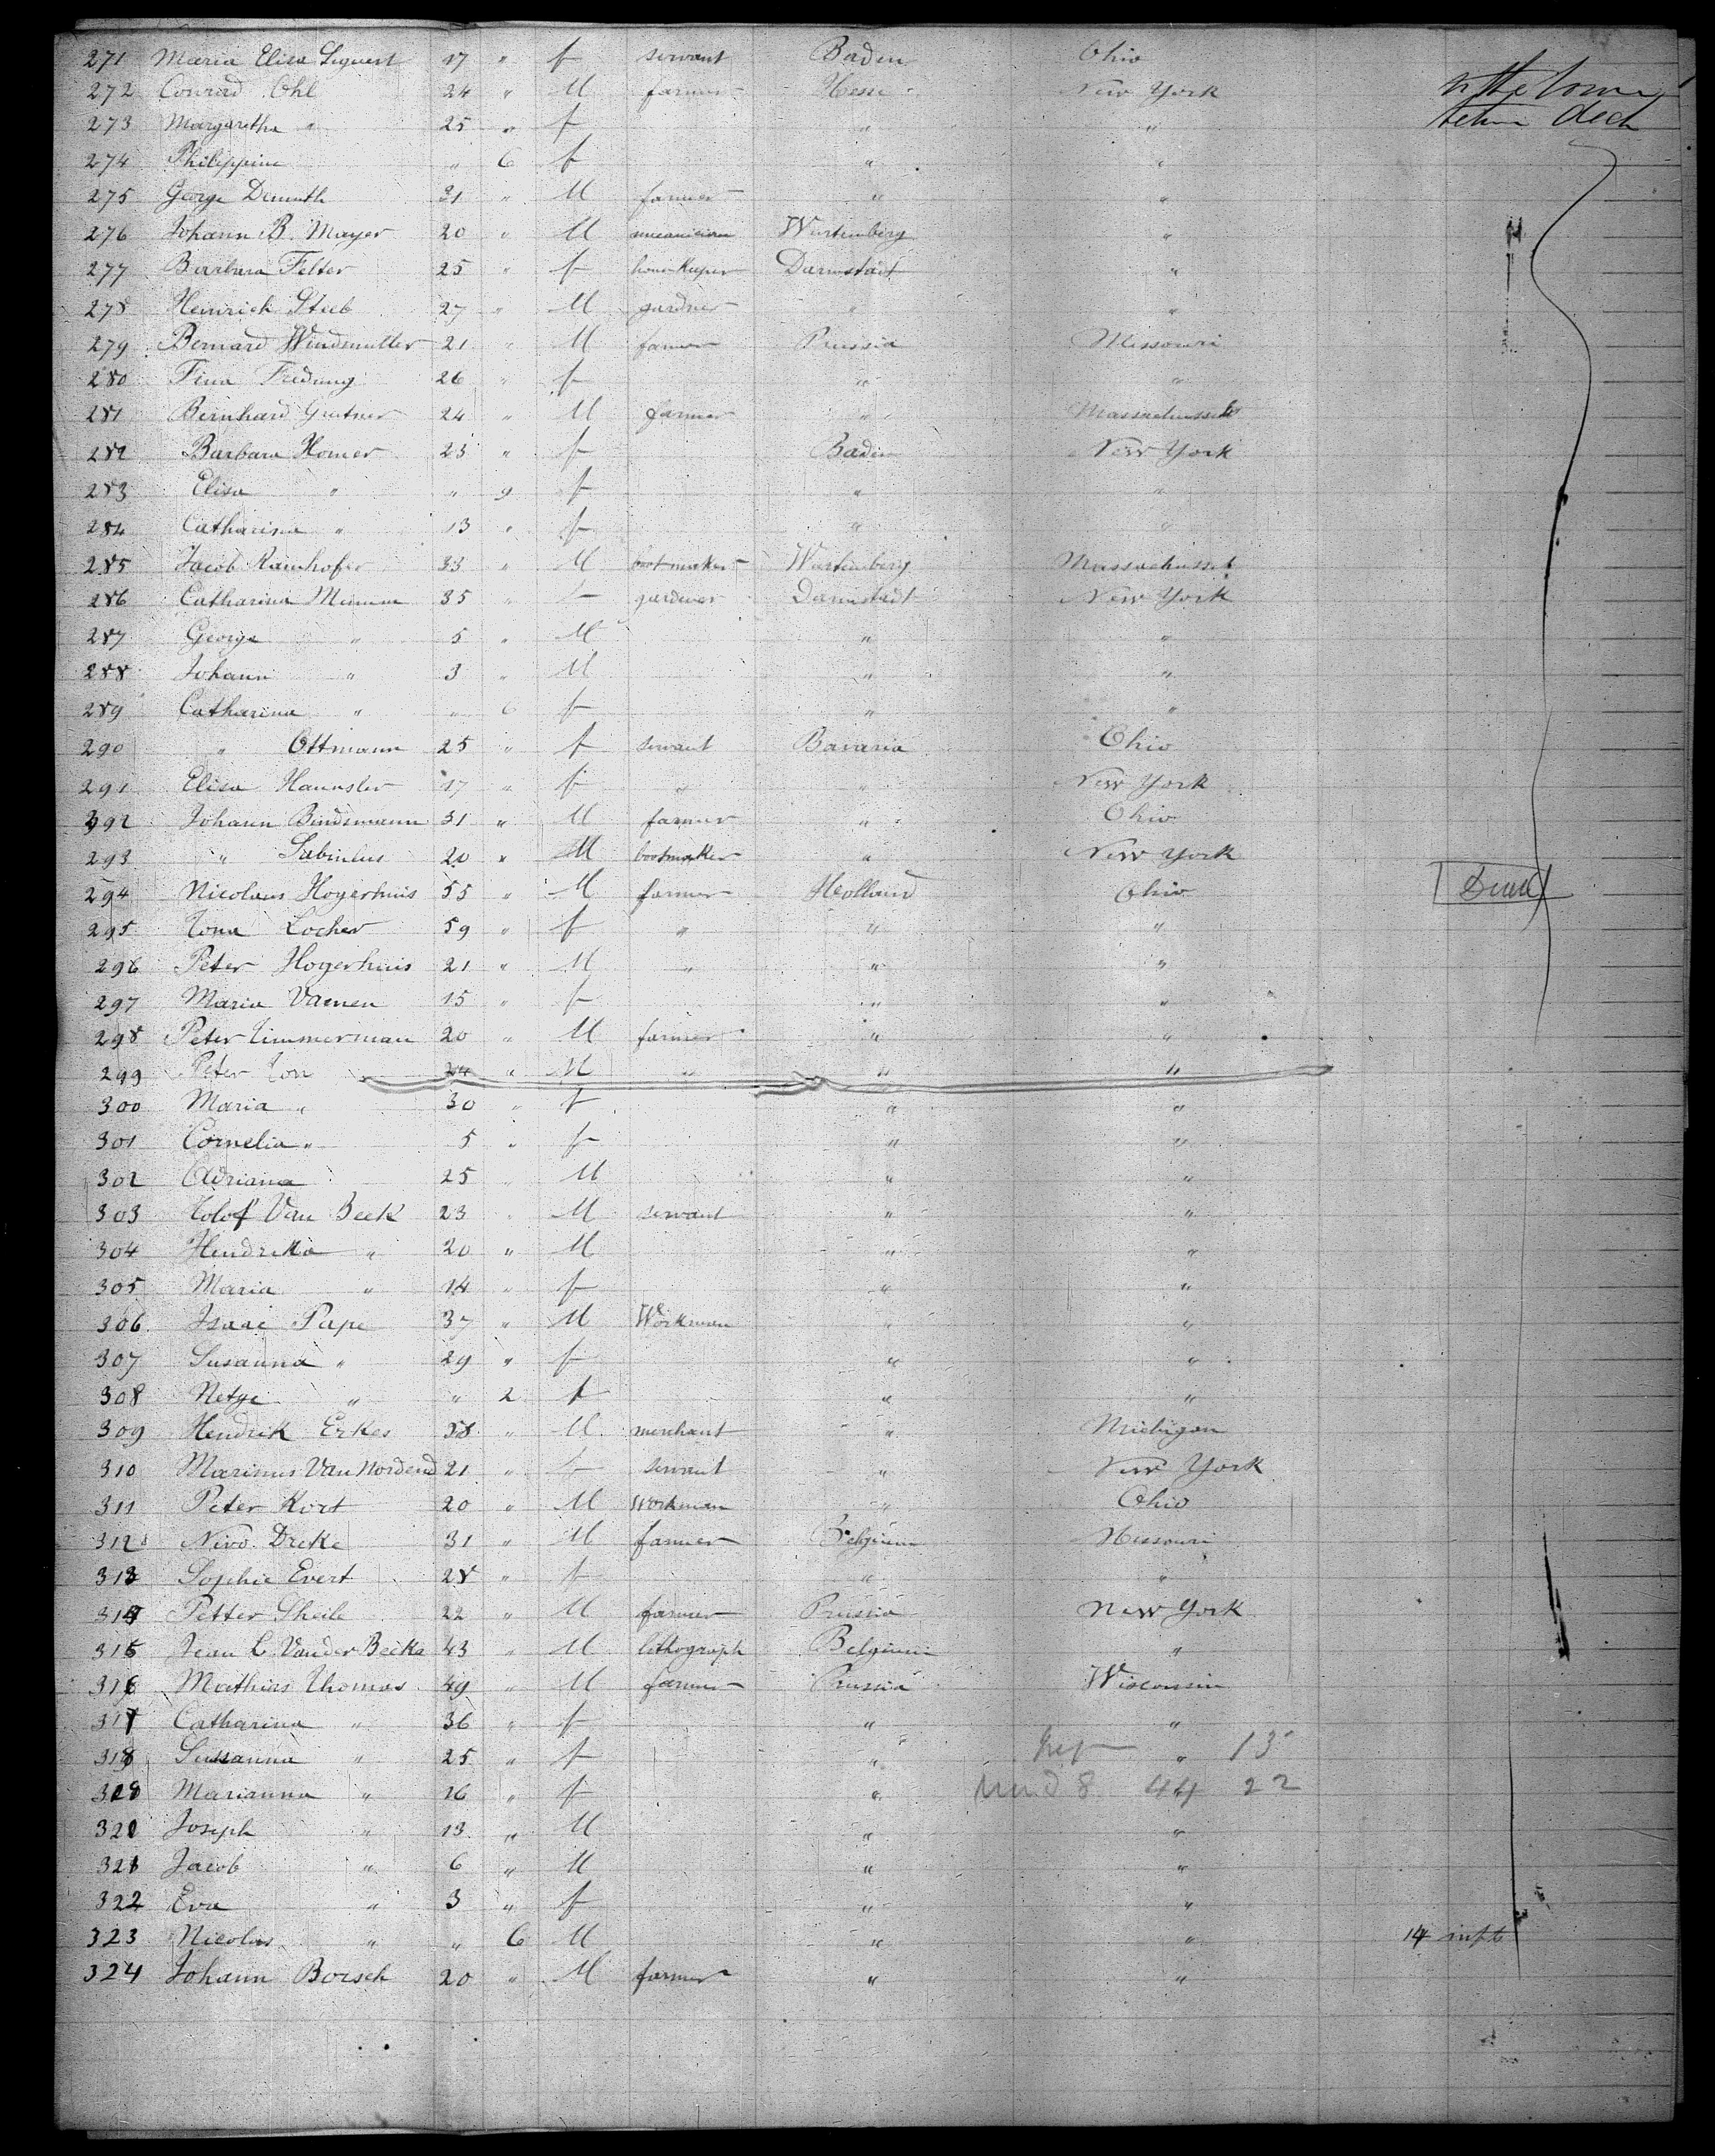 271 Maria Elisa Siguert 17 " f servant Baden Ohio
272 Conrad Ohl 24 " M farmer Hesse New York in the lower
273 Margaretha " 25 " f " " deck
274 Philippine " 6 f " "
275 George Demuth 31 " M farmer " "
276 Johann B. Mayer 20 " M mecanician Wurtemberg "
277 Barbara Felter 25 " f housekeeper Darmstadt "
278 Heinrich Steeb 27 " M gardner " "
279 Bernard Windmutter 21 " M farmer Prussia Missouri
280 Fina Fredung 26 " f " "
281 Bernhard Grutner 24 " M farmer " Massachussets
282 Barbara Homer 23 " f Baden New York
283 Elisa " " 9 f " "
284 Catharina " 13 " f " "
285 Jacob Rainhofer 33 " M bootmaker Wurtemberg Massachusset
286 Catharina 35 " f gardener Darmstadt New York
287 George " 5 " M " "
288 Johann " 3 " M " "
289 Catharina " " 6 f " "
290 " Ottmann 25 " f servant Bavaria Ohio
291 Elisa Haunsler 17 " f " " New York
292 Johann Bindsmann 31 " M farmer " Ohio
293 " Sabinlus 20 " M bootmaker " New York
294 Nicolaus Hogerhuis 55 " M farmer Holland Ohio
295 Tona Locher 59 " f " " "
296 Peter Hogerhuis 21 " M " " "
297 Maria Vamen 15 " f " "
298 Peter Timmerman 20 " M farmer " "
299 Peter Ton 24 " M " " "
300 Maria " 30 " f " "
301 Cornelia " 5 " f " "
302 Adriana 25 " M " "
303 Rolof Van Beek 23 " M servant " "
304 Hendrika " 20 " M " "
305 Maria " 14 " f " "
306 Isaac Pape 37 " M Workman " "
307 Susanna " 29 " f " "
308 Netge " " 2 f " "
309 Hendrik Erkes 38 " M merchant " Michigan
310 Marinus Van Nordend 21 " f servant " New York
311 Peter Kort 20 " M Workman " Ohio
312 Nivo Dreke 31 " M farmer Belgium Missouri
313 Sophie Evert 28 " f " "
314 Petter Sheile 22 " M farmer Prussia New York
315 Jean L. Vander Becke 43 " M lithograph Belgium "
316 Mathias Thomas 49 " M farmer Prussia Wisconsin
317 Catharina " 36 " f " "
318 Sussanna " 25 " f " " 13
Marianna " 16 " f " 8 44 22
Joseph " 13 " M " "
321 Jacob " 6 " M " "
322 Eva " 3 " f " "
323 Nicolas " " 6 M " " 14 infts
324 Johann Borsch 20 " M farmer " "